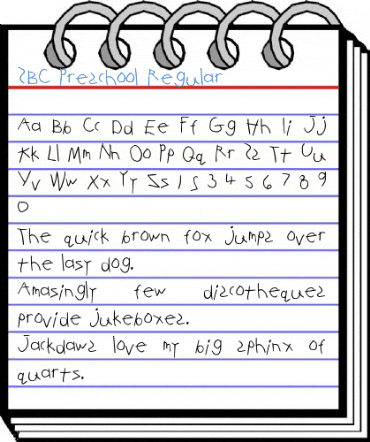 SBC Preschool Regular
Aa Bb Cc Dd Ee Ff Gg Hh Ii Jj
Kk Ll Mm Nn Oo Pp Qq Rr Ss Tt Uu
Vv Ww Xx Yy Zz 1 2 3 4 5 6 7 8 9
0
The quick brown fox jumps over
the lazy dog.
Amazingly few discotheques
provide jukeboxes.
Jackdaws love my big sphinx of
quartz.